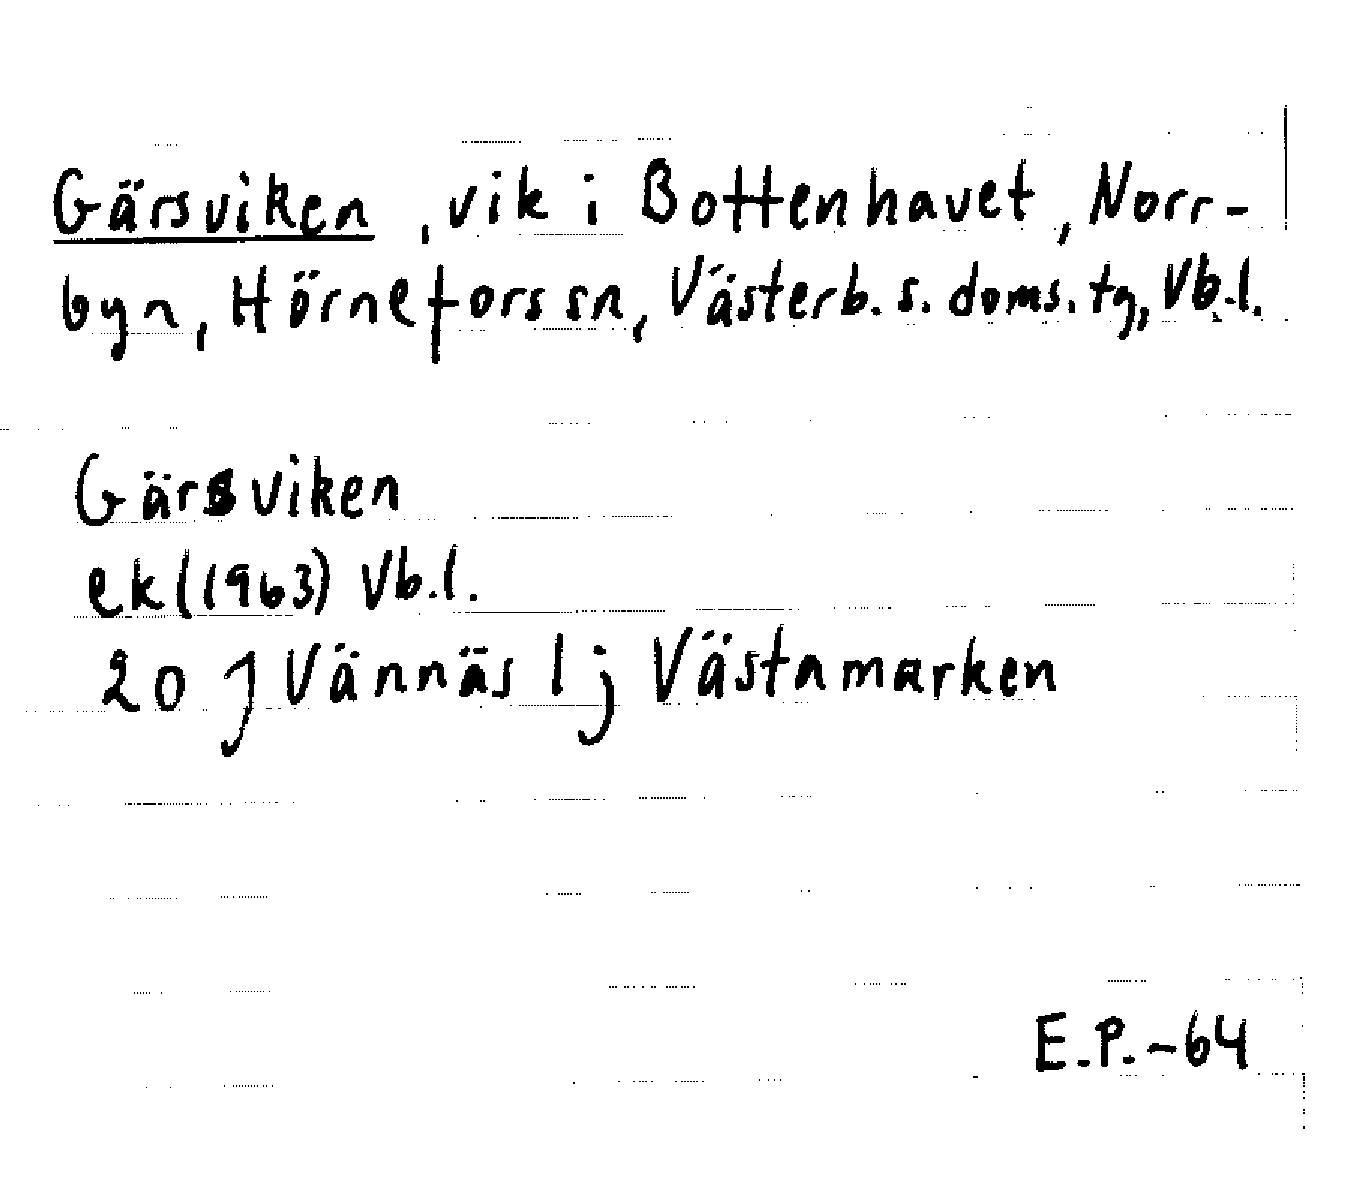 Gärsviken, vik i Bottenhavet, Norr-
byn, Hörnefors sn, Västerb. s. doms. tg, Vb.l.
Gärsviken
ek (1963) Vb.l.
20 J Vännäs 1 j Västamarken
E.P. -64